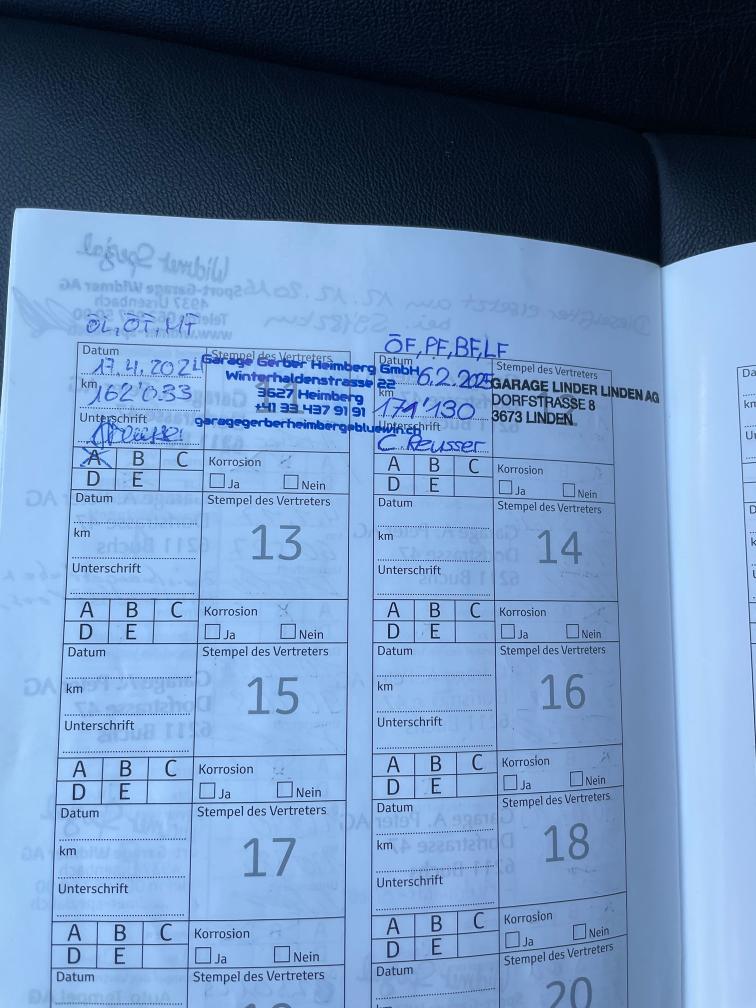 ÖL, ÖF, MF
Datum
17.4.2024
Stempel des Vertreters
Garage Gerber Heimberg GmbH
Winterhaldenstrasse 22
3627 Heimberg
+41 33 437 91 91
garagegerberheimberg@bluewin.ch
km
162'033
Unterschrift
A B C
D E
Korrosion
Ja Nein
ÖF, PF, BF, LF
Datum
6.2.2025
Stempel des Vertreters
GARAGE LINDER LINDEN AG
DORFSTRASSE 8
3673 LINDEN
km
171'130
Unterschrift
C. Reusser
A B C
D E
Korrosion
Ja Nein
Datum
Stempel des Vertreters
km
13
Unterschrift
A B C
D E
Korrosion
Ja Nein
Datum
Stempel des Vertreters
km
14
Unterschrift
A B C
D E
Korrosion
Ja Nein
Datum
Stempel des Vertreters
km
15
Unterschrift
A B C
D E
Korrosion
Ja Nein
Datum
Stempel des Vertreters
km
16
Unterschrift
A B C
D E
Korrosion
Ja Nein
Datum
Stempel des Vertreters
km
17
Unterschrift
A B C
D E
Korrosion
Ja Nein
Datum
Stempel des Vertreters
km
18
Unterschrift
A B C
D E
Korrosion
Ja Nein
Datum
Stempel des Vertreters
Datum
Stempel des Vertreters
km
20